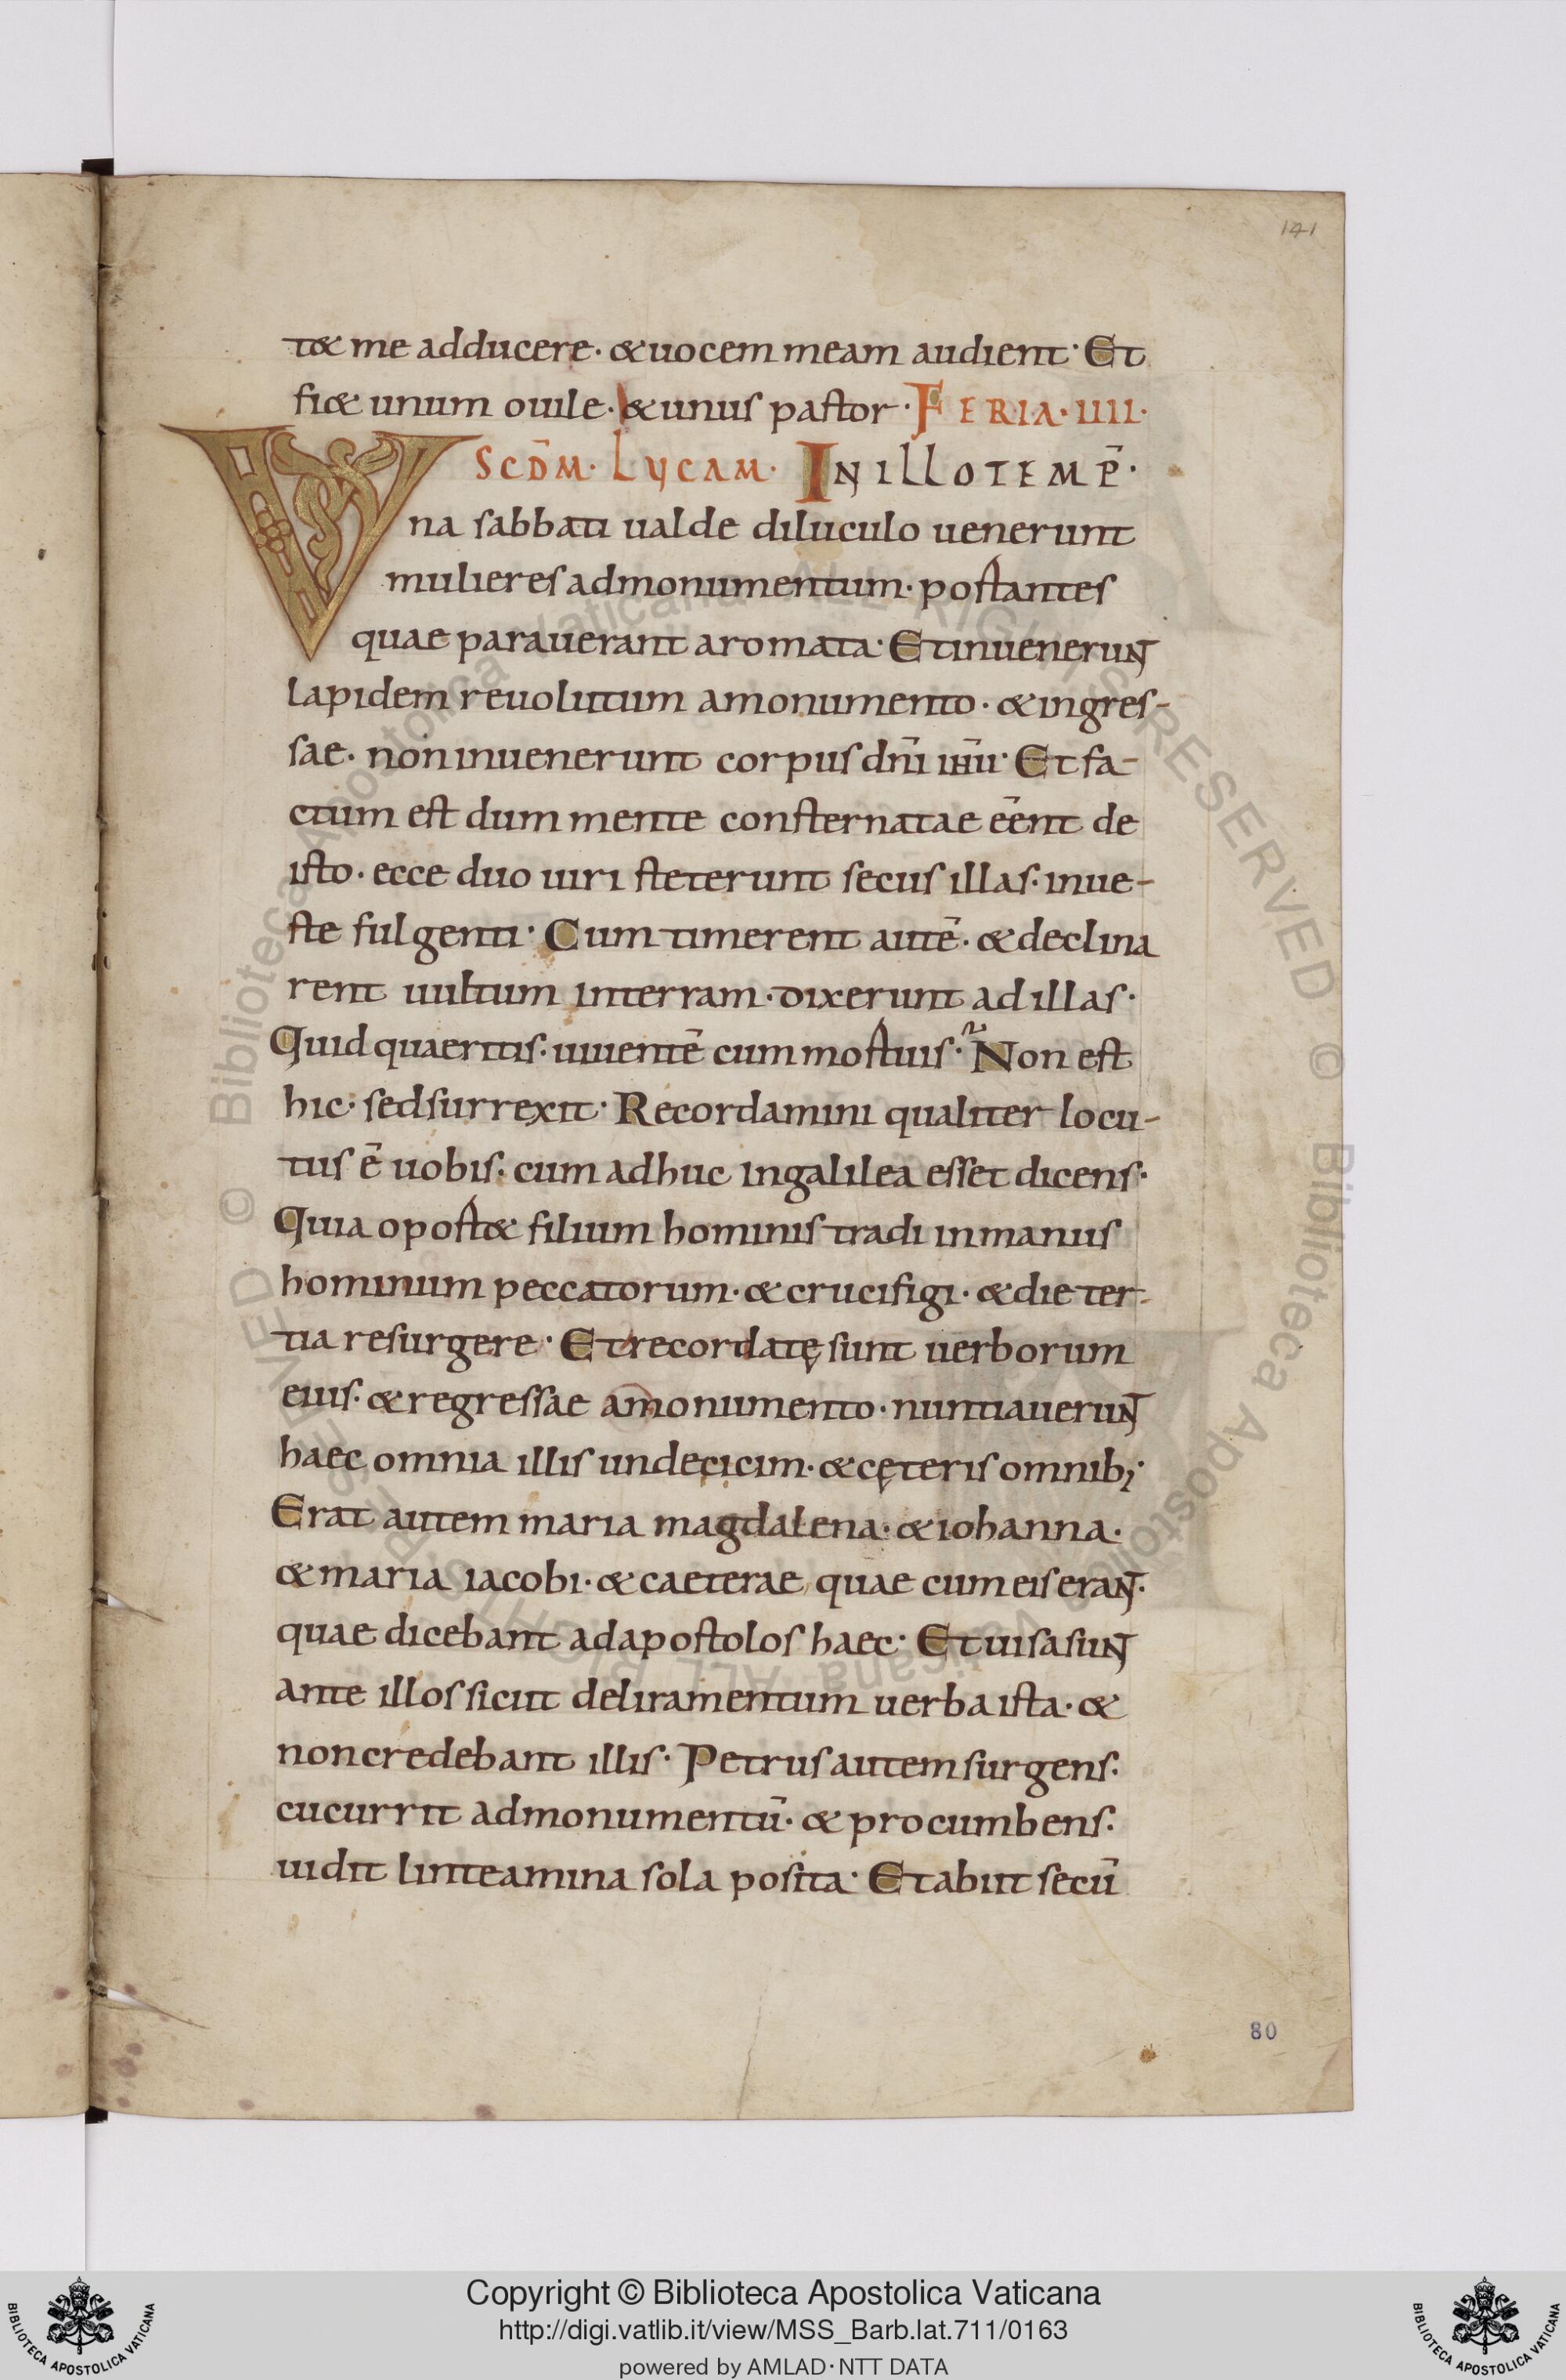 141
t& me adducere· & uocem meam audient· Et
fi& unum ouile· & unus pastor· FERIA· IIII·
SCD̄M· LUCAM· IN ILLO TEMP̄·
Una sabbati ualde diluculo uenerunt
mulieres ad monumentum· portantes
quae parauerant aromata· Et inuenerunt
lapidem reuolutum a monumento· & ingres-
sae· non inuenerunt corpus dn̄i ih̄u· Et fa-
ctum est dum mente consternatae eēnt de
isto· ecce duo uiri steterunt secus illas· in ue-
ste fulgenti· Cum timerent autē· & declina
rent uultum in terram· dixerunt ad illas·
Quid quaeritis· uiuentē cum mortuis· Non est
hic· sed surrexit· Recordamini qualiter locu-
tus ē uobis· cum adhuc in galilea esset dicens·
Quia oport& filium hominis tradi in manus
hominum peccatorum· & crucifigi· & die ter-
tia resurgere· Et recordatę sunt uerborum
eius· & regressae a monumento· nuntiauerunt
haec omnia illis undecicim· & cęteris omnib;
Erat autem maria magdalena· & iohanna·
& maria iacobi· & caeterae quae cum eis erant·
quae dicebant ad apostolos haec· Et uisa sunt
ante illos sicut deliramentum uerba ista· &
non credebant illis· Petrus autem surgens·
cucurrit ad monumentū· & procumbens·
uidit linteamina sola posita· Et abiit secū
80
Copyright © Biblioteca Apostolica Vaticana
http://digi.vatlib.it/view/MSS_Barb.lat.711/0163
powered by AMLAD·NTT DATA
BIBLIOTECA APOSTOLICA VATICANA
BIBLIOTECA APOSTOLICA VATICANA